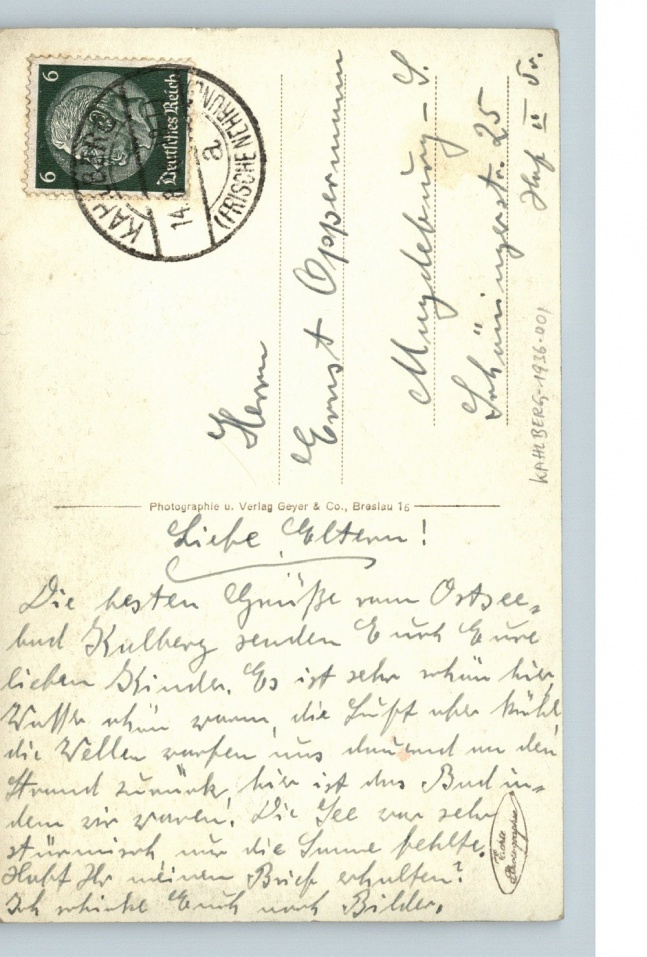 6
6
Deutsches Reich
KAHLBERG
14.8
(FRISCHE NEHRUNG)
a
Herrn
Ernst Oppermann
Magdeburg - S.
Schöningerstr. 25
Hof II Tr.
KAHLBERG-1936-001
Photographie u. Verlag Geyer & Co., Breslau 16
Liebe Eltern!
Die besten Grüße vom Ostsee=
bad Kalberg senden Euch Eure
lieben Kinder. Es ist sehr schön hier,
Wasser schön warm, die Luft aber kühl,
die Wellen warfen uns dauernd an den
Strand zurück, hier ist das Bad in=
dem wir waren! Die See war sehr
stürmisch nur die Sonne fehlte.
Habt Ihr meinen Brief erhalten?
Ich schicke Euch noch Bilder.
Echte
Photographie